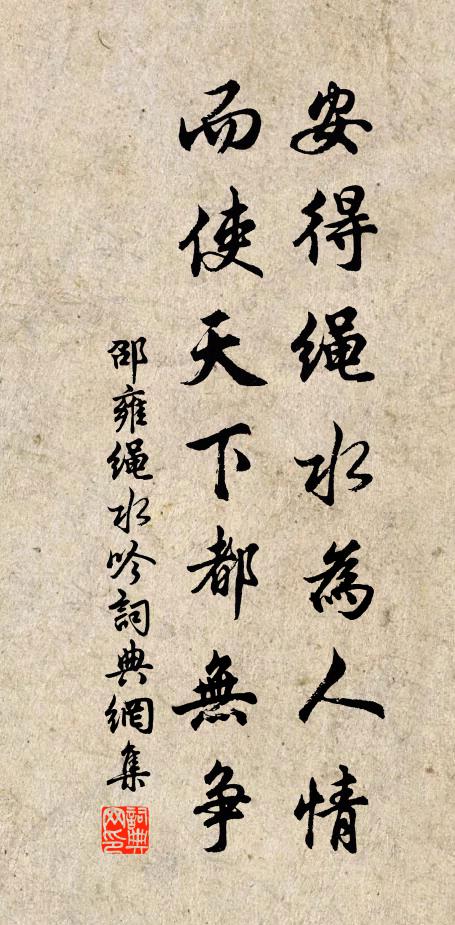 安得绳水為人情
而使天下都無争
邵雍绳水吟詞典網集
詞典网印